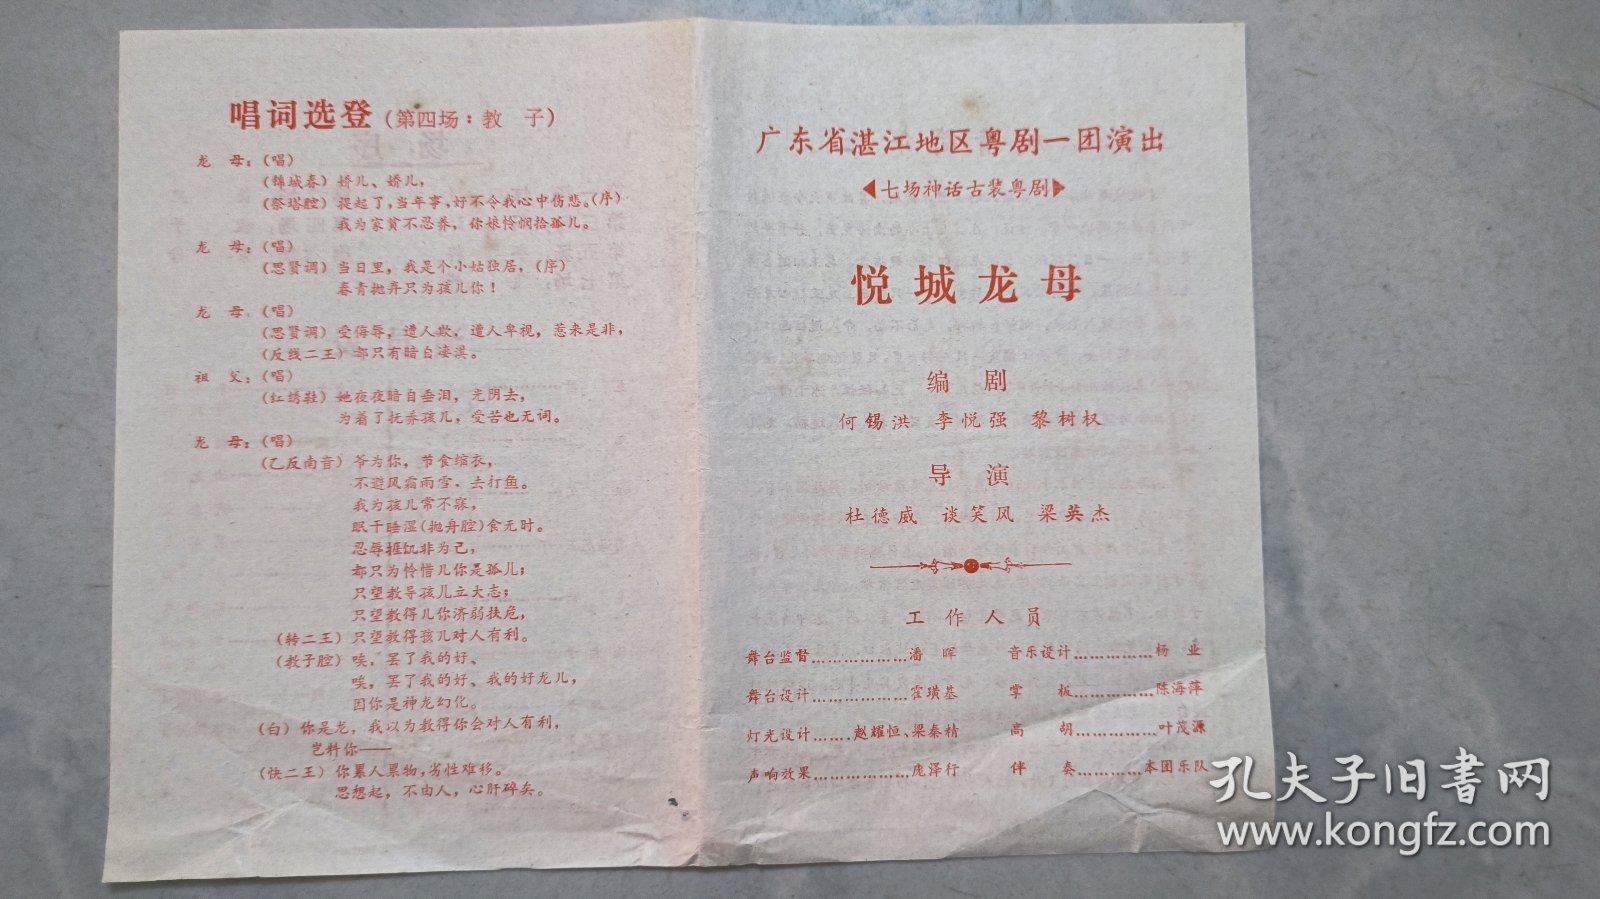 唱词选登(第四场：教 子)
龙 母：(唱)
(锦城春) 娇儿、娇儿，
(祭塔腔) 提起了，当年事，好不令我心中伤悲。(序)
我为家贫不忍养，你娘怜悯拾孤儿。
龙 母：(唱)
(思贤调) 当日里，我是个小姑独居，(序)
春青抛弃只为孩儿你！
龙 母：(唱)
(思贤调) 受侮辱，遭人欺，遭人卑视，惹来是非，
(反线二王) 都只有暗自凄淇。
祖 父：(唱)
(红绣鞋) 她夜夜暗自垂泪，光阴去，
为着了抚养孩儿，受苦也无词。
龙 母：(唱)
(乙反南音) 爷为你，节食缩衣，
不避风霜雨雪，去打鱼。
我为孩儿常不寐，
眠干睡湿(抛舟腔)食无时。
忍辱捱饥非为己，
都只为怜惜儿你是孤儿；
只望教导孩儿立大志；
只望教得儿你济弱扶危，
(转二王) 只望教得孩儿对人有利。
(教子腔) 唉，罢了我的好、
唉，罢了我的好、我的好龙儿，
因你是神龙幻化。
(白) 你是龙，我以为教得你会对人有利，
岂料你——
(快二王) 你累人累物，劣性难移。
思想起，不由人，心肝碎矣。
广东省湛江地区粤剧一团演出
◀七场神话古装粤剧▶
悦城龙母
编 剧
何锡洪 李悦强 黎树权
导 演
杜德威 谈笑风 梁英杰
工作人员
舞台监督………………潘 晖 音乐设计……………杨 业
舞台设计………………霍璜基 掌 板……………陈海萍
灯光设计……赵耀恒、梁秦精 高 胡……………叶茂源
声响效果………………庞泽行 伴 奏…………本团乐队
孔夫子旧书网
www.kongfz.com